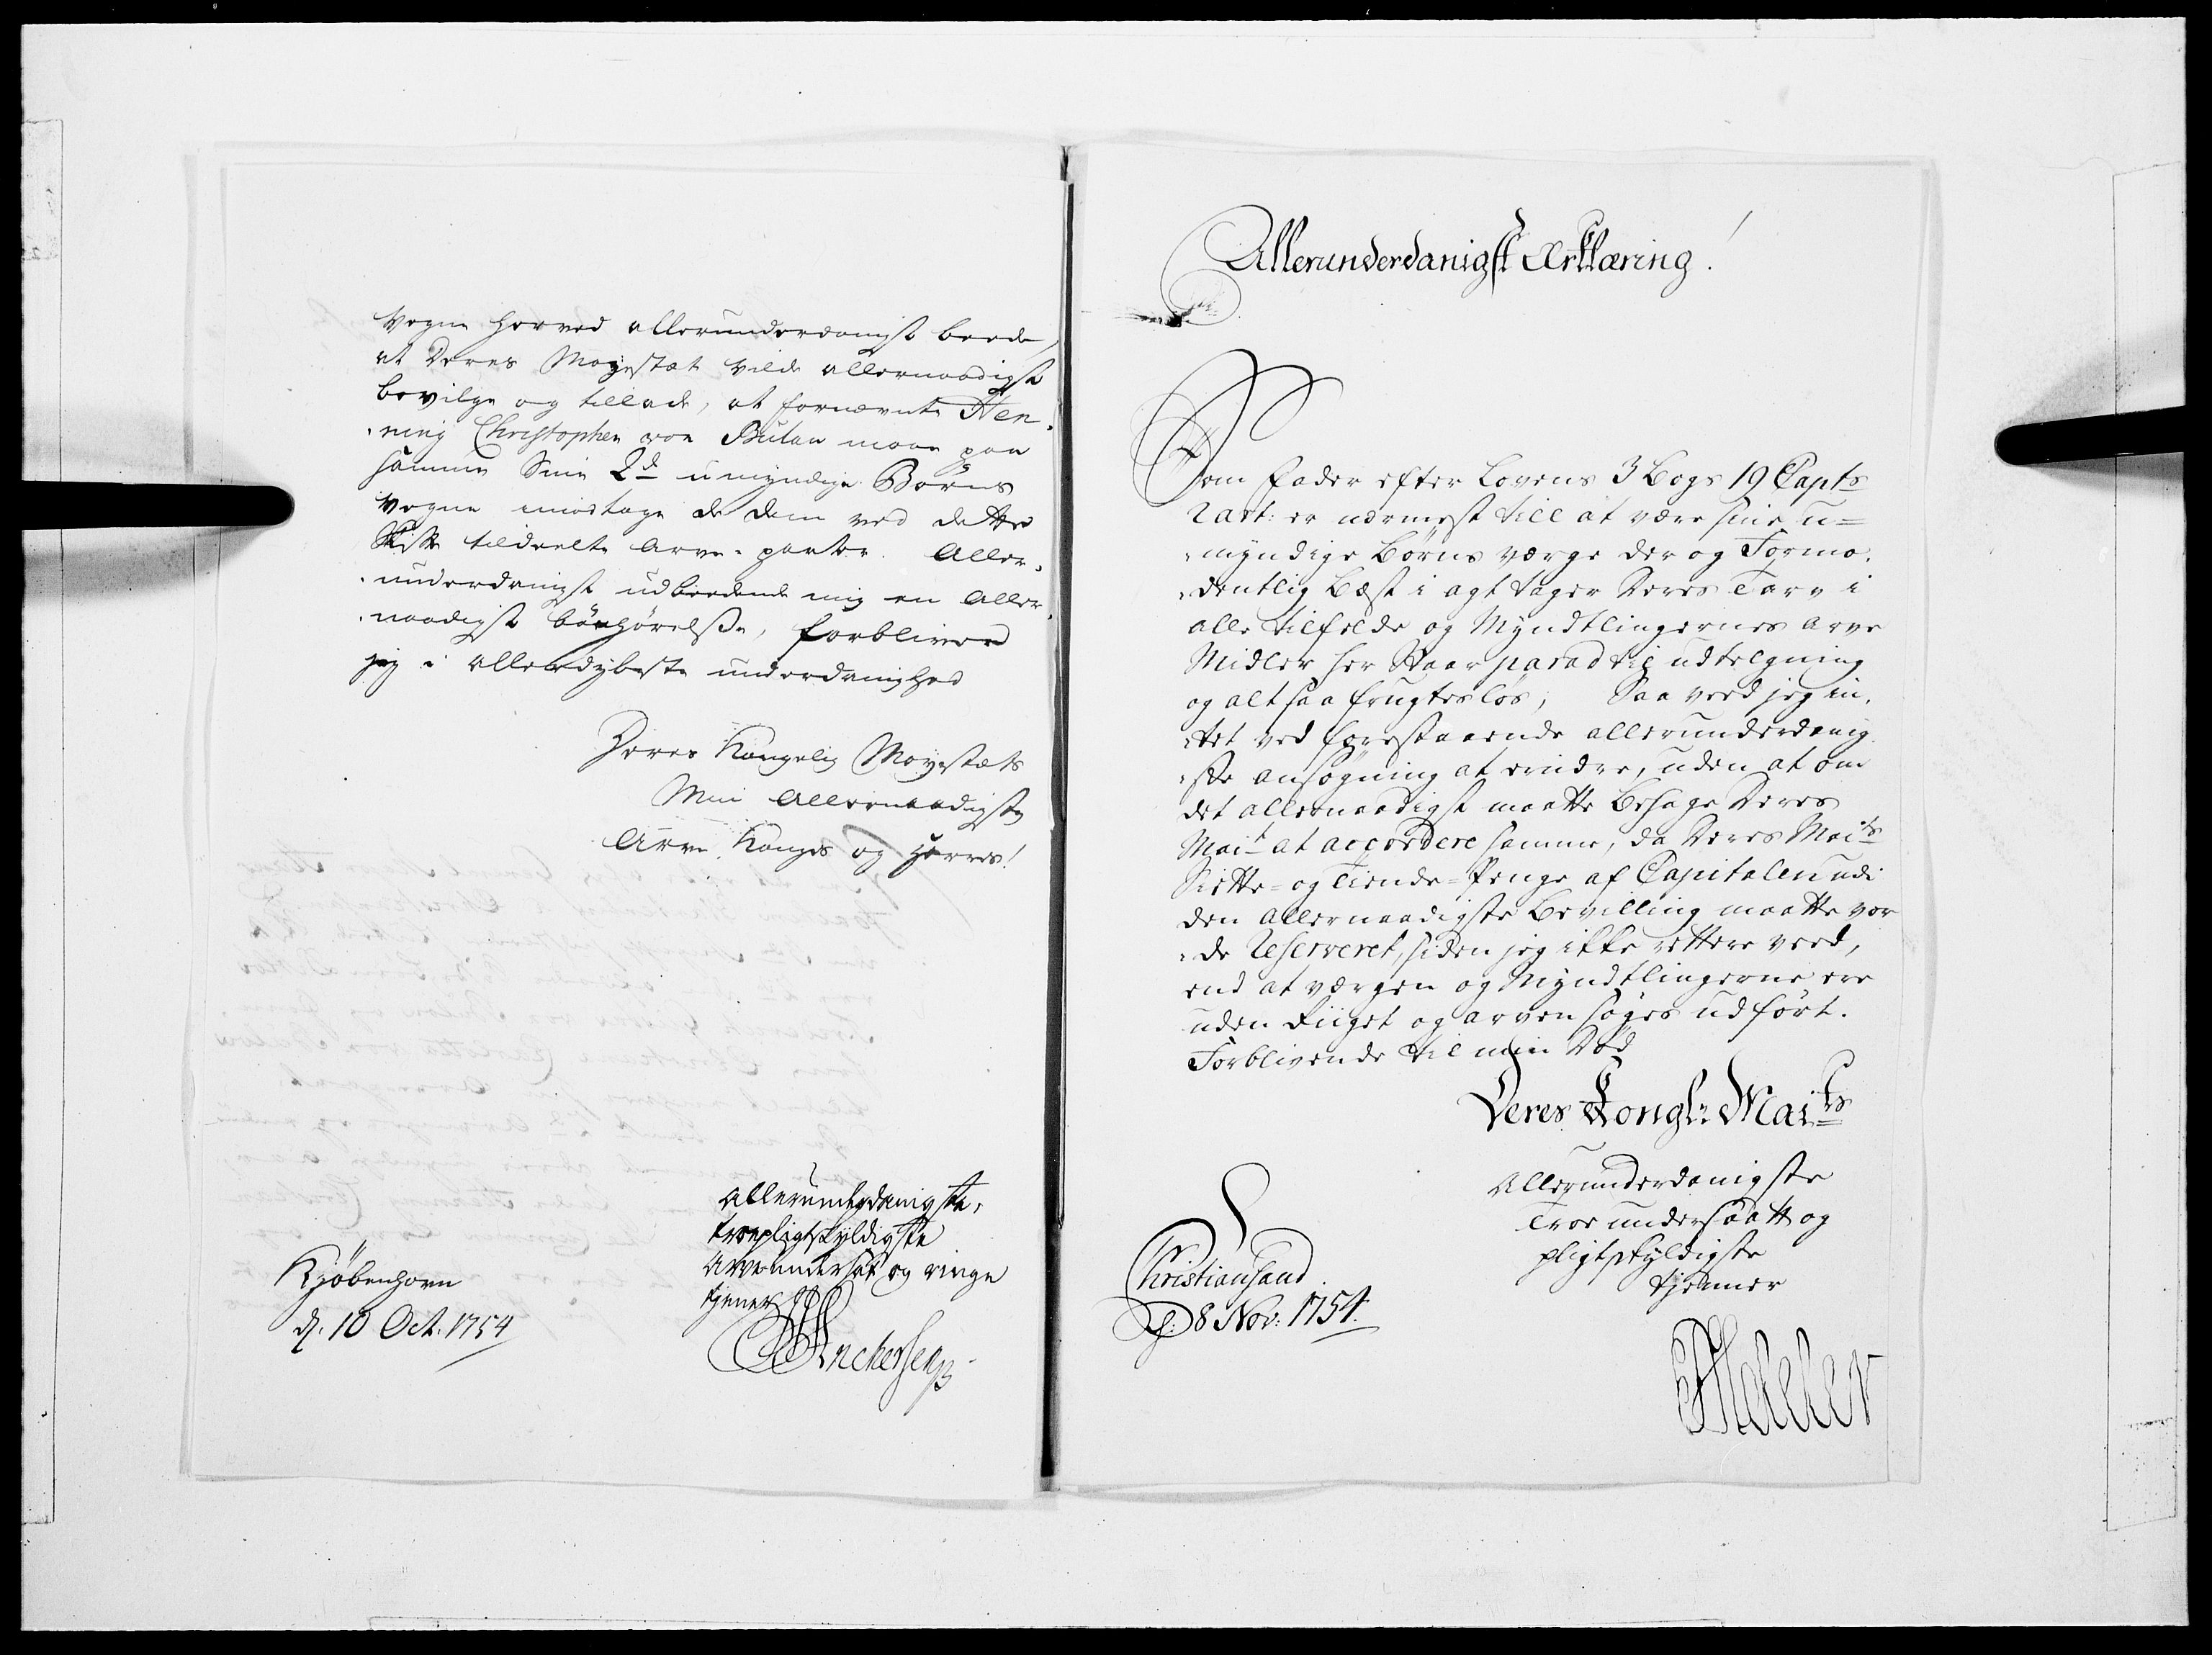 Vegne herved allerunderdanigst beede,
at Deres Mayestæt vilde allernaadigst
bevilge og tillade, at fornævnte Hen-
-ning Christopher von Bulau maae paa
samme Sine 2de umyndige Børns
Vegne imodtage de dem ved dette
Skifte tildeelte Arve-parter. Aller-
-underdanigst udbeedende mig en Aller-
-naadigst bönhörelsse, forbliver
jeg i allerdybeste underdanighed
Deres Kongelig Mayestæts
Min Allernaadigste
Arve Konges og Herres!
Allerunderdanigste,
troepligtskyldigste
Arveundersat og ringe
tjener
Anckersen
Kjöbenhavn
d. 10 Oct. 1754
Allerunderdanigst Erklæring!
Som Fader efter Lovens 3 Bogs 19 Capts
2 art: er nærmest till at være sine u=
-myndige Børns værge der og Formo-
-dentlig Best i agt tager Deres Tarv i
alle tilfelde og Myndtlingernes Arve
Midler her Staar parad til udtælgning
og altsaa frugtesløs; Saa veed jeg in-
-tet ved forestaaende allerunderdanig-
-ste ansøgning at erindre, uden at om
det allernaadigst maatte Behage Deres
Mait at accordere samme, da Deres Maits
Siette- og Tiende-Penge af Capitalen udi
den allernaadigste Bevilling maatte vor-
-de Reserveret, siden jeg ikke rettere veed,
end at værgen og Myndtlingerne ere
uden Riiget og arven søges udført.
Forblivende til min Død
Deres Kongl: Maits
Allerunderdanigste
Troe undersaatt og
pligtskyldigste
tjenner
Adeler
Christiansand
d: 8 Nov: 1754.